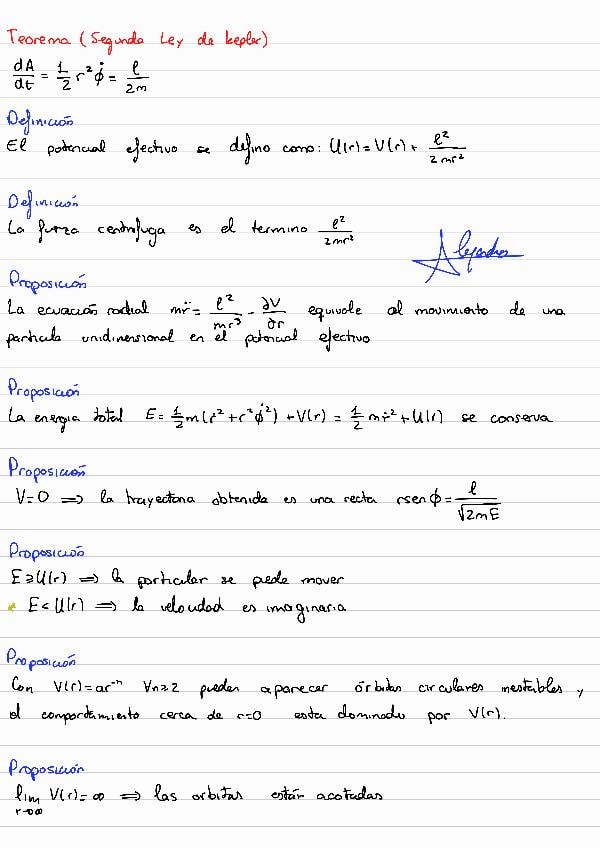 Teorema (Segunda Ley de kepler)
dA/dt = 1/2 r² φ̇ = ℓ/2m
Definición
El potencial efectivo se define como: U(r) = V(r) + ℓ²/2mr²
Definición
La fuerza centrífuga es el termino ℓ²/2mr²
Alejandro
Proposición
La ecuación radial mr̈ = ℓ²/mr³ - ∂V/∂r equivale al movimiento de una
particula unidimensional en el potencial efectivo
Proposición
La energia total E = 1/2 m(ṙ² + r²φ̇²) + V(r) = 1/2 mṙ² + U(r) se conserva
Proposición
V=0 ⟹ la trayectoria obtenida es una recta rsenφ = ℓ/√2mE
Proposición
E ≥ U(r) ⟹ la particular se puede mover
E < U(r) ⟹ la velocidad es imaginaria
Proposición
Con V(r) = ar⁻ⁿ ∀n≥2 pueden aparecer órbitas circulares inestables y
el comportamiento cerca de r=0 esta dominado por V(r).
Proposición
lim r→∞ V(r) = ∞ ⟹ las orbitas están acotadas